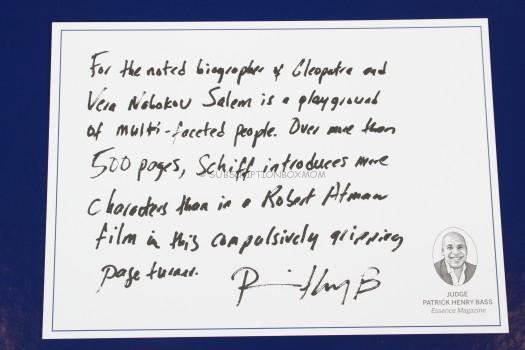 For the noted biographer of Cleopatra and
Vera Nabokov Salem is a playground
of multi-faceted people. Over more than
500 pages, Schiff introduces more
characters than in a Robert Altman
film in this compulsively gripping
page turner.
SUBSCRIPTIONBOXMOM
JUDGE
PATRICK HENRY BASS
Essence Magazine